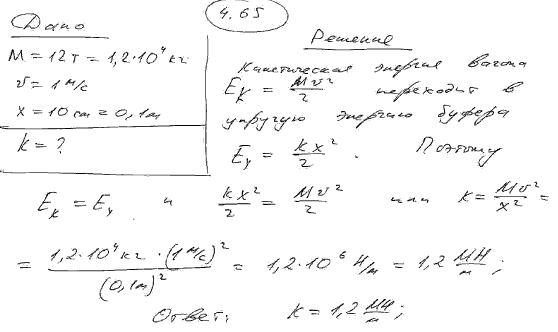 4.65
Дано
M = 12 т = 1,2·10⁴ кг
v = 1 м/с
x = 10 см = 0,1 м
k = ?
Решение
Кинетическая энергия вагона
E_K = Mv²/2 переходит в
упругую энергию буфера
E_y = kx²/2. Поэтому
E_K = E_y и kx²/2 = Mv²/2 или k = Mv²/x² =
= 1,2·10⁴ кг·(1 м/с)²/(0,1 м)² = 1,2·10⁶ Н/м = 1,2 МН/м;
Ответ: k = 1,2 МН/м;